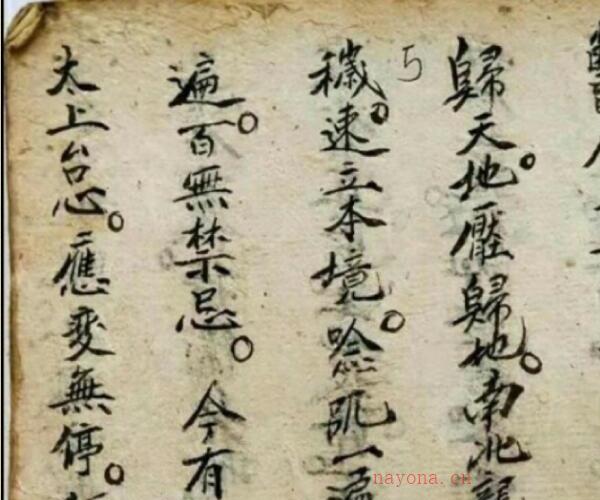 歸天。地壓歸地。南北
穢。速立本境。唸咒一遍
遍。百無禁忌。今有
太上台心。應變無停。
nayona.cn